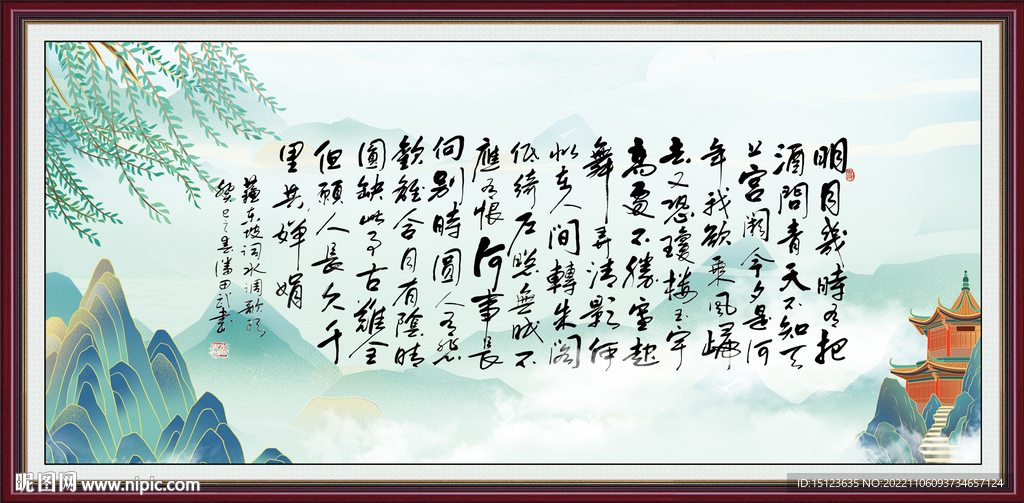 明月幾時有把
酒問青天不知天
上宮闕今夕是何
年我欲乘風歸
去又恐瓊樓玉宇
高處不勝寒起
舞弄清影何
似在人間轉朱閣
低綺户照無眠不
應有恨何事長
向別時圓人有悲
歡離合月有陰晴
圓缺此事古難全
但願人長久千
里共嬋娟
蘇東坡词水调歌頭
癸巳之潘田武書
昵图网 www.nipic.com
ID:15123635 NO:20221106093734657124